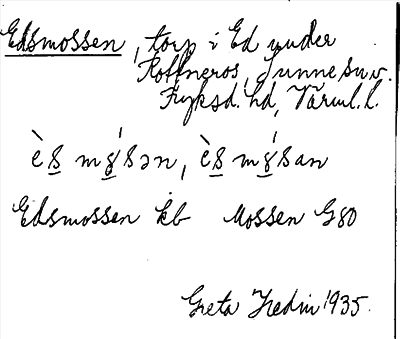 Edsmossen, torp i Ed under
Rottneros, Sunne sn v.
Fryksd. hd, Värml. l.
è s̲ m ɣ̲́ s ə n, è s̲ m ɣ̲́ s a n
Edsmossen kb Mossen G80
Greta Hedin 1935.